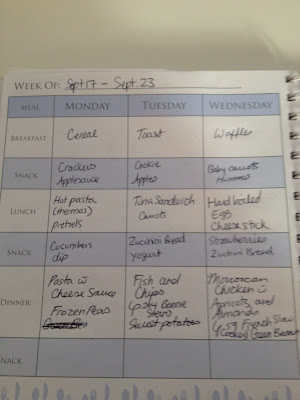 WEEK OF: Sept 17 - Sept. 23
MEAL MONDAY TUESDAY WEDNESDAY
BREAKFAST Cereal Toast Waffles
SNACK Crackers Cookie Baby carrots
Applesauce Apples Hummus
LUNCH Hot pasta Tuna Sandwich Hard boiled
(thermos) Carrots Egg
pretzels Cheese stick
SNACK Cucumbers Zucchini Bread Strawberries
dip yogurt Zucchini Bread
DINNER Pasta w Fish and Moroccan
Cheese Sauce Chips Chicken w
Frozen Peas Apricots and
Sweet potatoes Almonds
French
Green Beans
SNACK